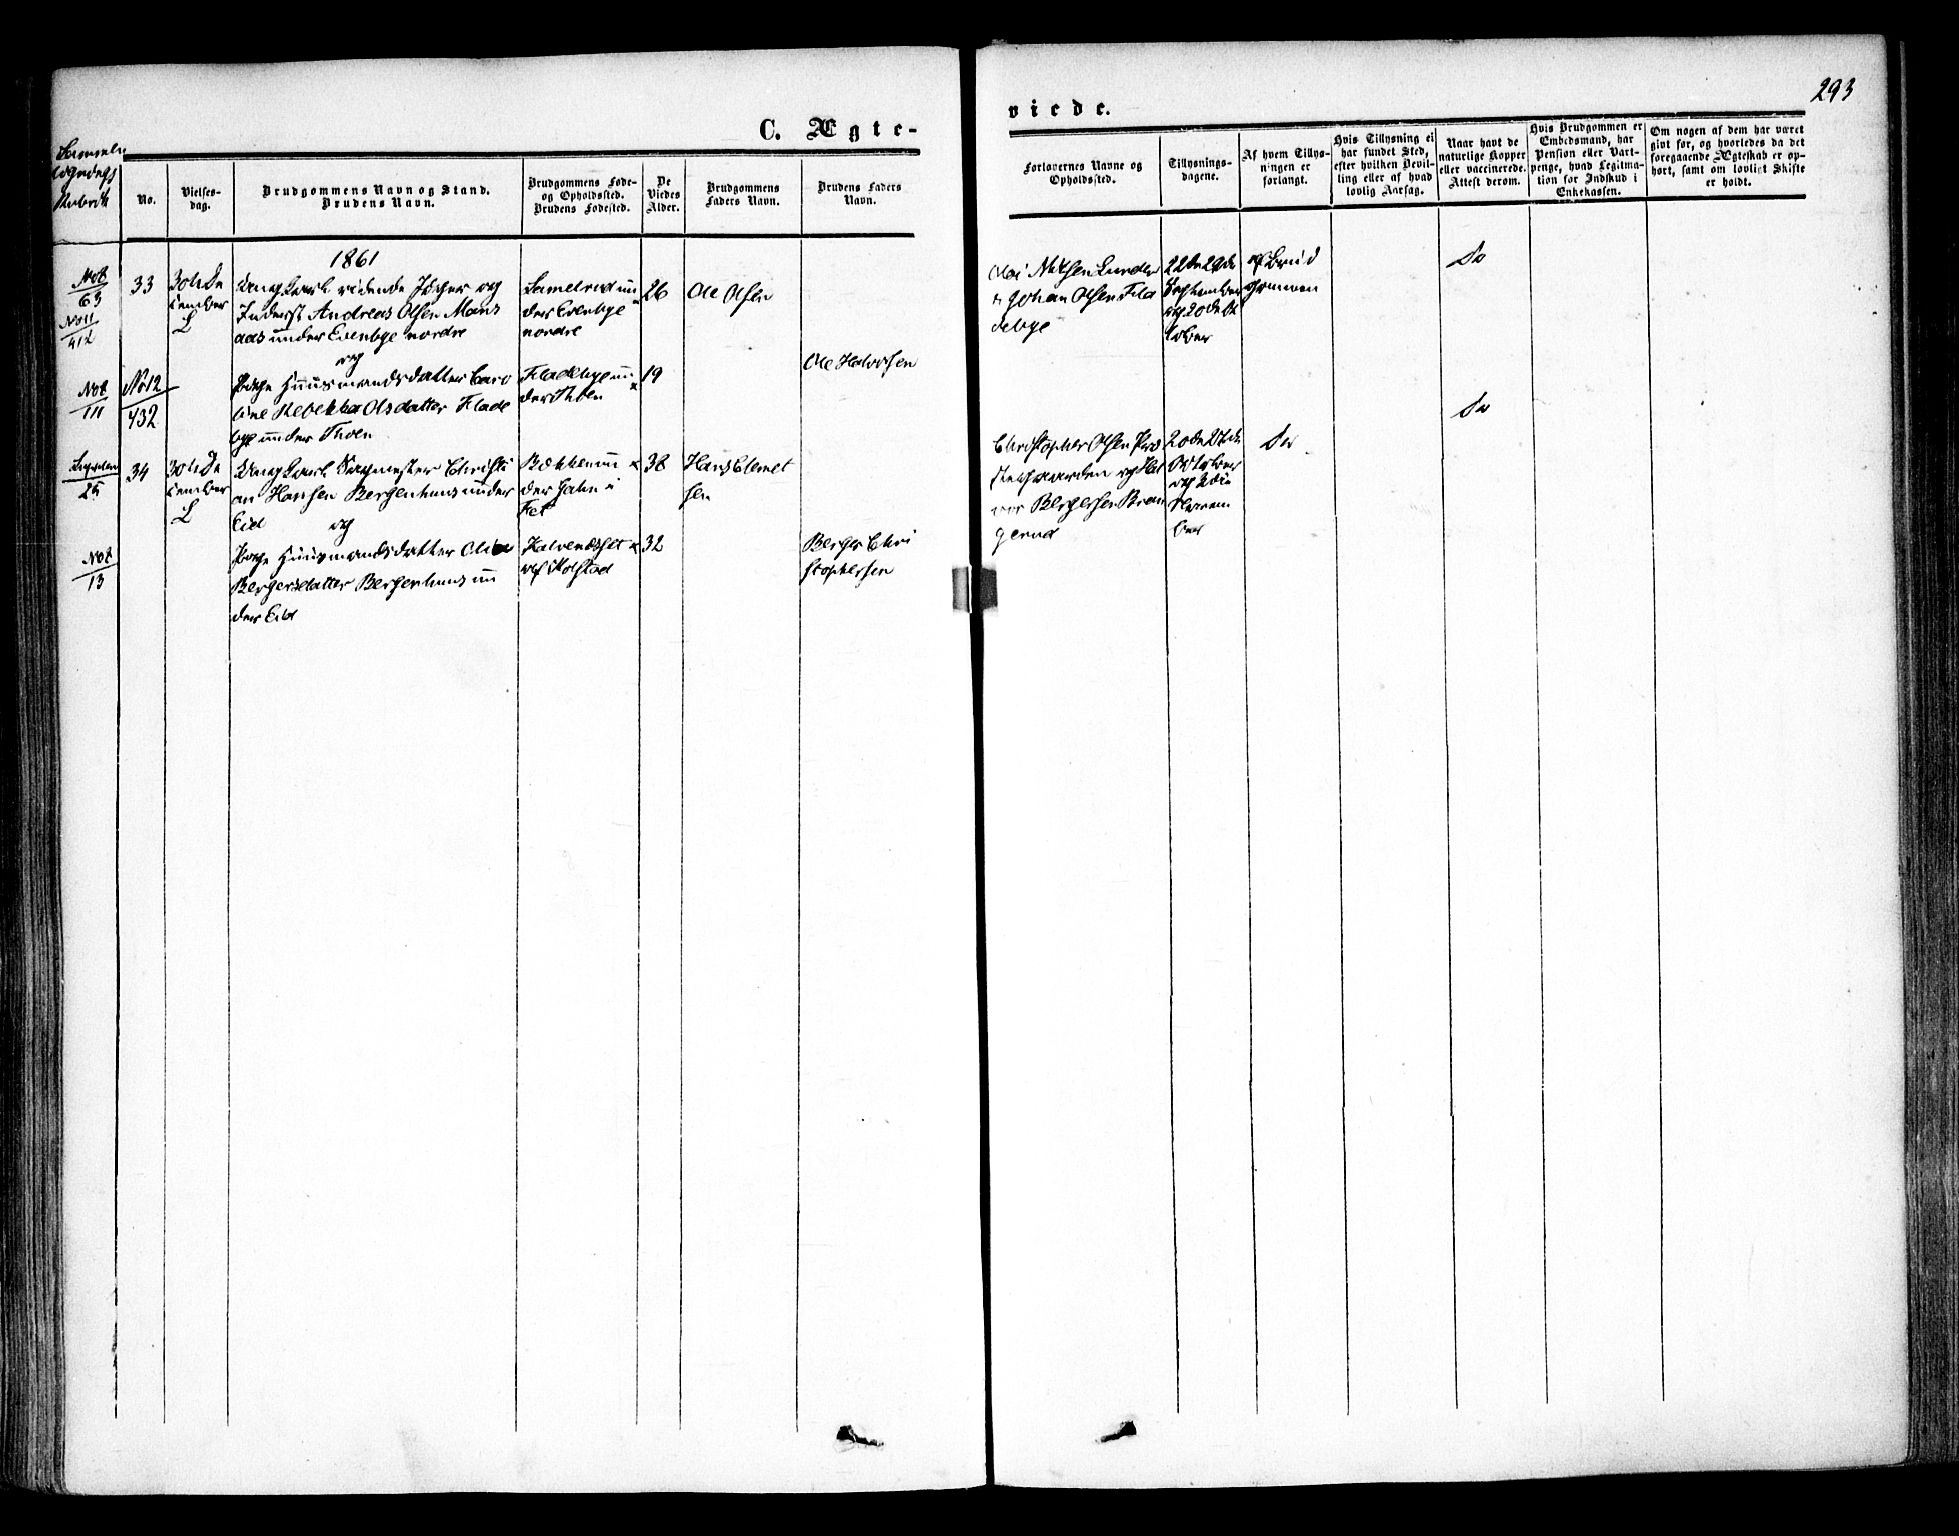 C. Ægte-
No.
Vielses-
dag.
Brudgommens Navn og Stand.
Brudens Navn.
Brudgommens Føde-
og Opholdssted.
Brudens Fødested.
De
Viedes
Alder.
Brudgommens
Faders Navn.
Brudens Faders
Navn.
1861
No 8
63
No 11
412
33
30te De
cember
L
Ung Karl ridende Jæger og
Inderst Andreas Olsen Mons
aas under Evenbye nordre
og
der Evenbye
nordre
26
Ole Olsen
No 8
111
No 12
432
Pige Huusmandsdatter Caro
line Rebekka Olsdatter Flade
bye under Thoen
Fladebye un
der Thoen
19
Ole Halvorsen
25
34
30te De
cember
L
Ung Karl Christi
an Hansen Bergenhuus under
Eid og
Bakken un
der Hahn i
Fet
38
Hans Clemet
sen
No 8
13
Pige Huusmandsdatter
Bergersdatter Bergenhuus un
der Eid
af Kolstad
32
Berger Chri
stophersen
viede.
293
Forlovernes Navne og
Opholdssted.
Tillysnings-
dagene.
Af hvem Tillys-
ningen er
forlangt.
Hvis Tillysning ei
har fundet Sted,
efter hvilken Bevil-
ling eller af hvad
lovlig Aarsag.
Naar havt de
naturlige Kopper
eller vaccinerede.
Attest derom.
Hvis Brudgommen er
Embedsmand, har
Pension eller Vart-
penge, hvad Legitima-
tion for Indskud i
Enkekassen.
Om nogen af dem har været
givt før, og hvorledes da det
foregaaende Ægteskab er op-
hørt, samt om lovligt Skifte
er holdt.
Johan Olsen Fla
debye
22de 29de
September
og 20de Ok
tober
af Brud
gommen
Do
Do
Christopher Olsen
og Hal
vor Bergersen Bran
gerud
20de 27de
Oktober
og 3die
Novem
ber
Do